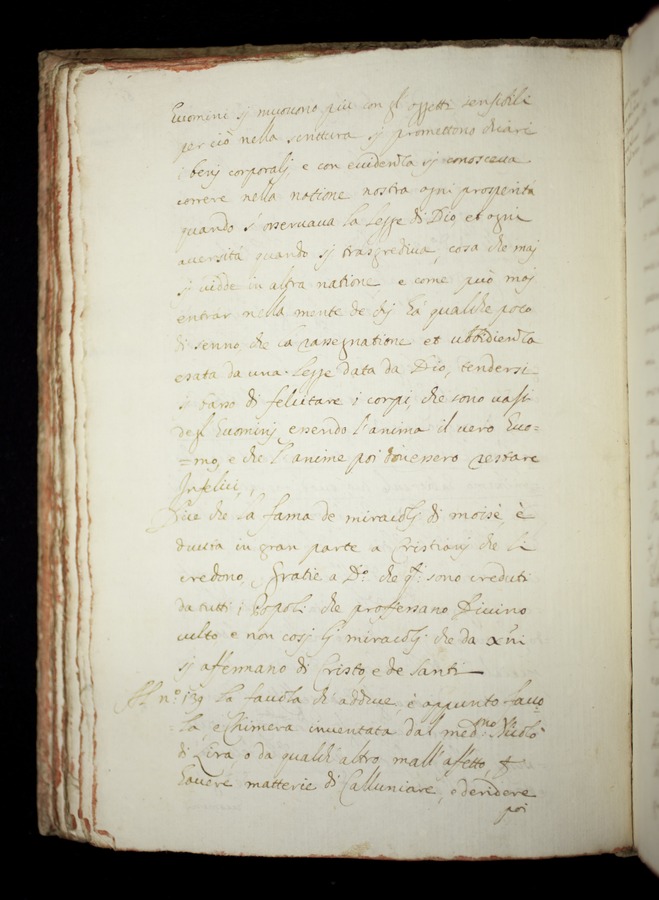 Huomini si muovono più con gl'oggetti sensibili
per ciò nella scrittura si promettono chiari
i beni corporali, e con evidenza si conosceva
correre nella natione nostra ogni prosperità
quando s'osservava la legge di Dio, et ogni
aversità quando si trasgrediva, cosa che mai
si vidde in altra natione, e come può mai
entrar nella mente de chi hà qualche poco
di senno, che la rassegnatione et ubbidienza
esata da una legge data da Dio, tendersi
di felicitare i corpi, che sono vasi
degl'Huomini, essendo l'anima il vero Huo=
=mo, e che l'anime poi dovessero restare
Infelici,
che la fama de miracoli di moisè, è
dovuta in gran parte a Cristiani che li
credono, gratie a D.o che q.i sono creduti
da tutti i Popoli che professano Divino
culto e non così li miracoli che da xni
si affermano di Cristo, e de santi
n.o 139 la favola di è appunto favo
la, e Chimera inventata dal med.mo Nicolò
di Lira o da qualch'altro mall'affetto, p
havere matterie di Calluniare, e deridere
poi